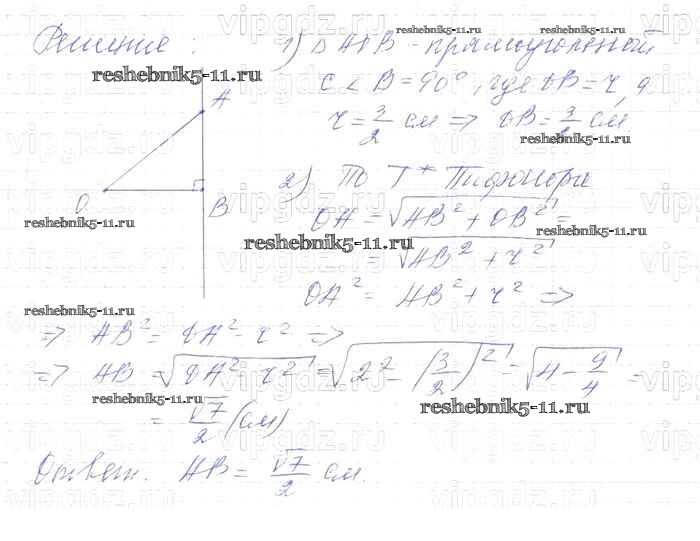 Решение: 1) Δ AOB - прямоугольный
с ∠ B = 90°, где OB = r, а
r = 3/2 см ⇒ OB = 3/2 см
A
O
B
2) По т* Пифагора
OA = √(AB² + OB²) =
= √(AB² + r²)
OA² = AB² + r² ⇒
⇒ AB² = OA² - r² ⇒
⇒ AB = √(OA² - r²) = √(2² - (3/2)²) = √(4 - 9/4) =
= √7/2 (см)
Ответ. AB = √7/2 см.
reshebnik5-11.ru
reshebnik5-11.ru
reshebnik5-11.ru
reshebnik5-11.ru
reshebnik5-11.ru
reshebnik5-11.ru
reshebnik5-11.ru
reshebnik5-11.ru
reshebnik5-11.ru
vipgdz.ru